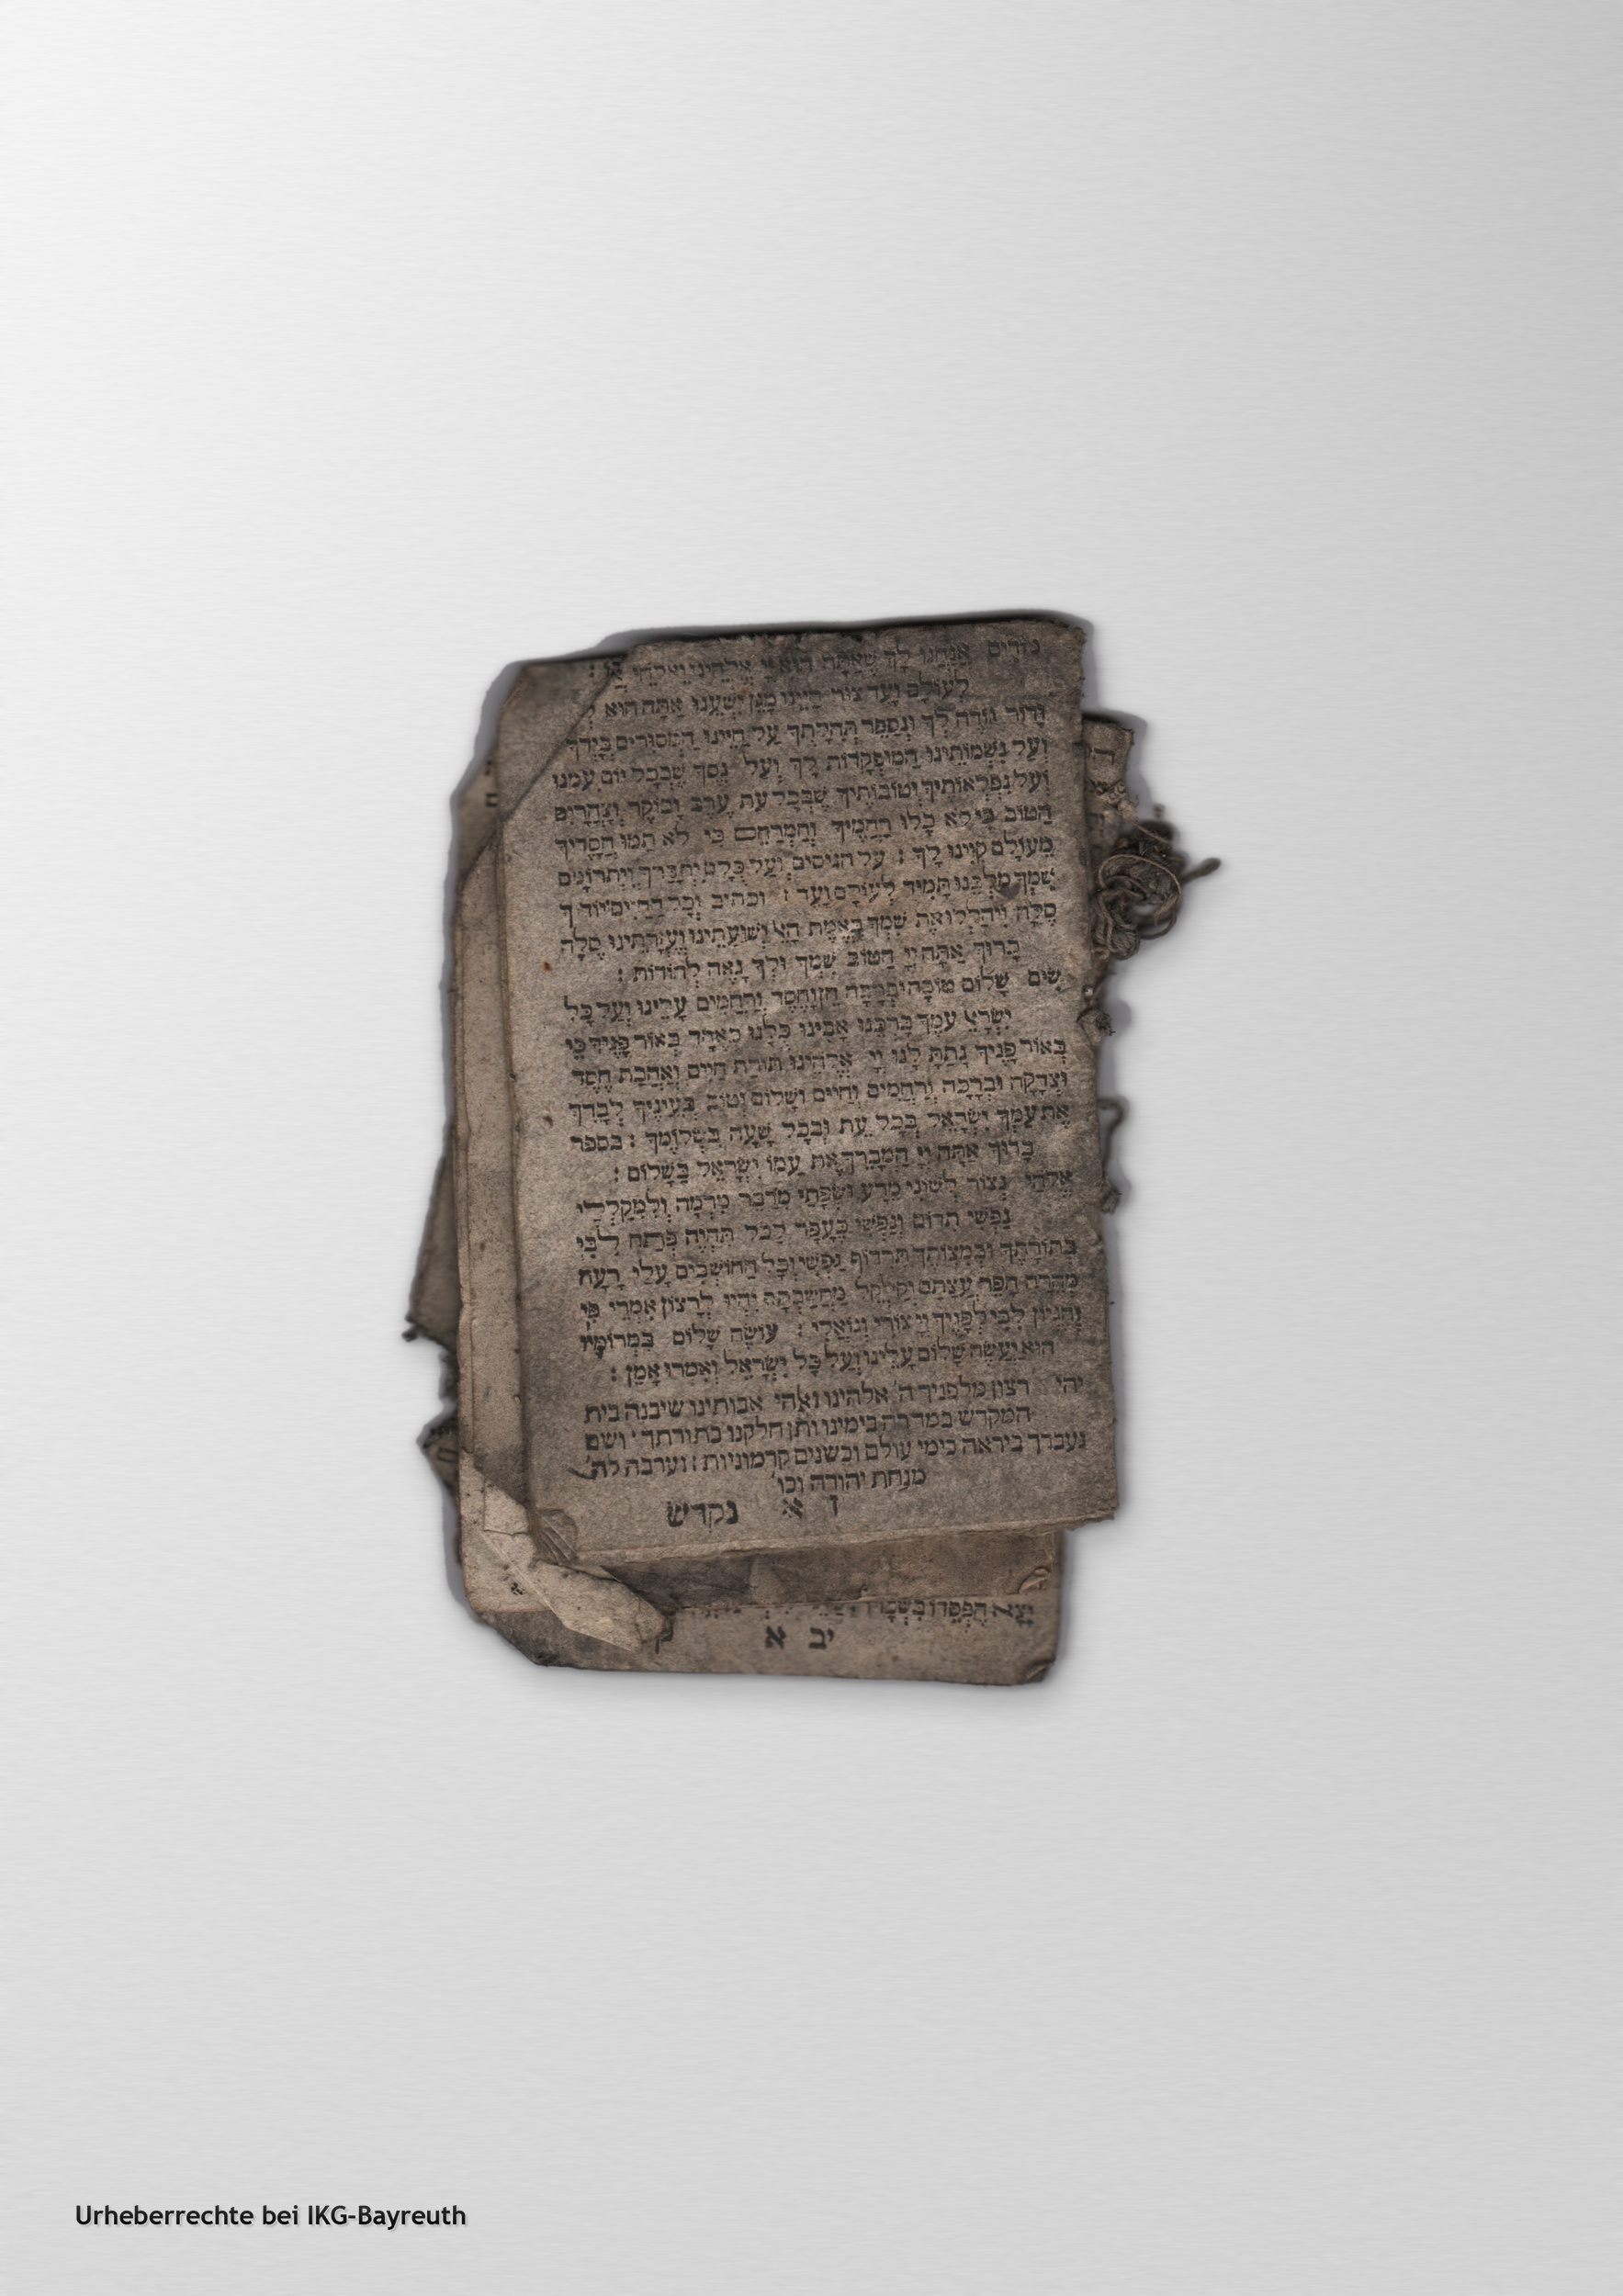 מודים אֲנַחְנוּ לָךְ שֶׁאַתָּה הוּא יְיָ אֱלֹהֵינוּ וֵאלֹהֵי
לְעוֹלָם וָעֶד צוּר חַיֵּינוּ מָגֵן יִשְׁעֵנוּ אַתָּה הוּא
וָדוֹר נוֹדֶה לְּךָ וּנְסַפֵּר תְּהִלָּתֶךָ עַל חַיֵּינוּ הַמְּסוּרִים בְּיָדֶךָ
וְעַל נִשְׁמוֹתֵינוּ הַפְּקוּדוֹת לָךְ וְעַל נִסֶּךָ שֶׁבְּכָל יוֹם עִמָּנוּ
וְעַל נִפְלְאוֹתֶיךָ וְטוֹבוֹתֶיךָ שֶׁבְּכָל עֵת עֶרֶב וָבוֹקֶר וְצָהֳרָיִם
הַטּוֹב כִּי לֹא כָלוּ רַחֲמֶיךָ וְהַמְרַחֵם כִּי לֹא תַמּוּ חֲסָדֶיךָ
מֵעוֹלָם קִוִּינוּ לָךְ : על הניסים וְעַל כֻּלָּם יִתְבָּרַךְ וְיִתְרוֹמֵם
שִׁמְךָ מַלְכֵּנוּ תָּמִיד לְעוֹלָם וָעֶד : וכתיב וְכָל הַחַיִּים יוֹדוּךָ
סֶלָה וִיהַלְלוּ אֶת שִׁמְךָ בֶּאֱמֶת הָאֵל יְשׁוּעָתֵינוּ וְעֶזְרָתֵינוּ סֶלָה
בָּרוּךְ אַתָּה יְיָ הַטּוֹב שִׁמְךָ וּלְךָ נָאֶה לְהוֹדוֹת :
שִׂים שָׁלוֹם טוֹבָה וּבְרָכָה חֵן וָחֶסֶד וְרַחֲמִים עָלֵינוּ וְעַל כָּל
יִשְׂרָאֵל עַמֶּךָ בָּרְכֵנוּ אָבִינוּ כֻּלָּנוּ כְּאֶחָד בְּאוֹר פָּנֶיךָ כִּי
בְאוֹר פָּנֶיךָ נָתַתָּ לָנוּ יְיָ אֱלֹהֵינוּ תּוֹרַת חַיִּים וְאַהֲבַת חֶסֶד
וּצְדָקָה וּבְרָכָה וְרַחֲמִים וְחַיִּים וְשָׁלוֹם וְטוֹב בְּעֵינֶיךָ לְבָרֵךְ
אֶת עַמְּךָ יִשְׂרָאֵל בְּכָל עֵת וּבְכָל שָׁעָה בִּשְׁלוֹמֶךָ : בספר
בָּרוּךְ אַתָּה יְיָ הַמְבָרֵךְ אֶת עַמּוֹ יִשְׂרָאֵל בַּשָּׁלוֹם :
אֱלֹהַי נְצוֹר לְשׁוֹנִי מֵרָע וּשְׂפָתַי מִדַּבֵּר מִרְמָה וְלִמְקַלְלַי
נַפְשִׁי תִדּוֹם וְנַפְשִׁי כֶּעָפָר לַכֹּל תִּהְיֶה פְּתַח לִבִּי
בְּתוֹרָתֶךָ וּבְמִצְוֹתֶיךָ תִּרְדּוֹף נַפְשִׁי וְכָל הַחוֹשְׁבִים עָלַי רָעָה
מְהֵרָה הָפֵר עֲצָתָם וְקַלְקֵל מַחֲשַׁבְתָּם יִהְיוּ לְרָצוֹן אִמְרֵי פִי
וְהֶגְיוֹן לִבִּי לְפָנֶיךָ יְיָ צוּרִי וְגוֹאֲלִי : עוֹשֶׂה שָׁלוֹם בִּמְרוֹמָיו
הוּא יַעֲשֶׂה שָׁלוֹם עָלֵינוּ וְעַל כָּל יִשְׂרָאֵל וְאִמְרוּ אָמֵן :
יהי רצון מלפניך ה' אלהינו ואלהי אבותינו שיבנה בית
המקדש במהרה בימינו ותן חלקנו בתורתך ושם
נעבדך ביראה כימי עולם וכשנים קדמוניות : וערבה לה'
מנחת יהודה וכו'
ד א נקדש
יָצָא הֶפְסֵדוֹ בִּשְׂכָרוֹ
יב א
Urheberrechte bei IKG-Bayreuth